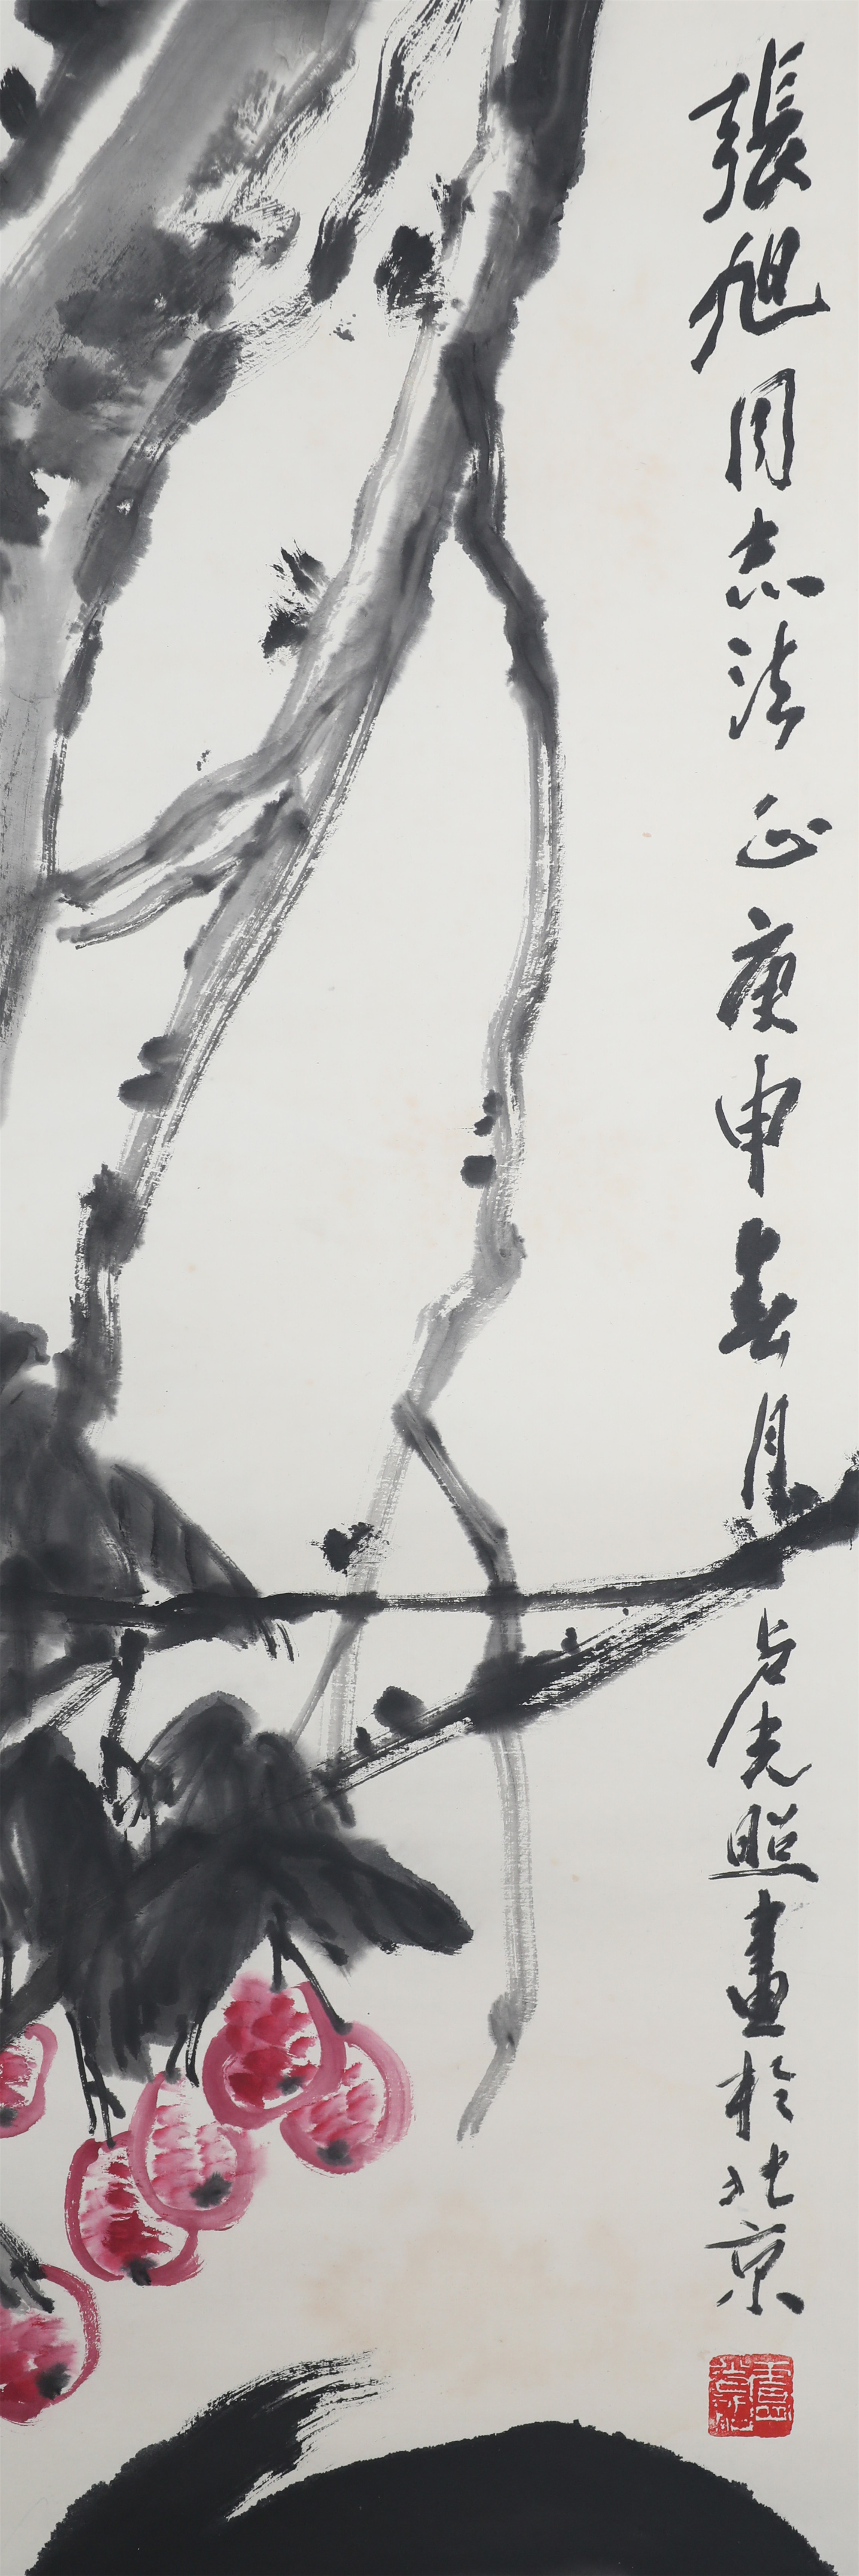 張旭同志法正庚申春月卢光照畫於北京